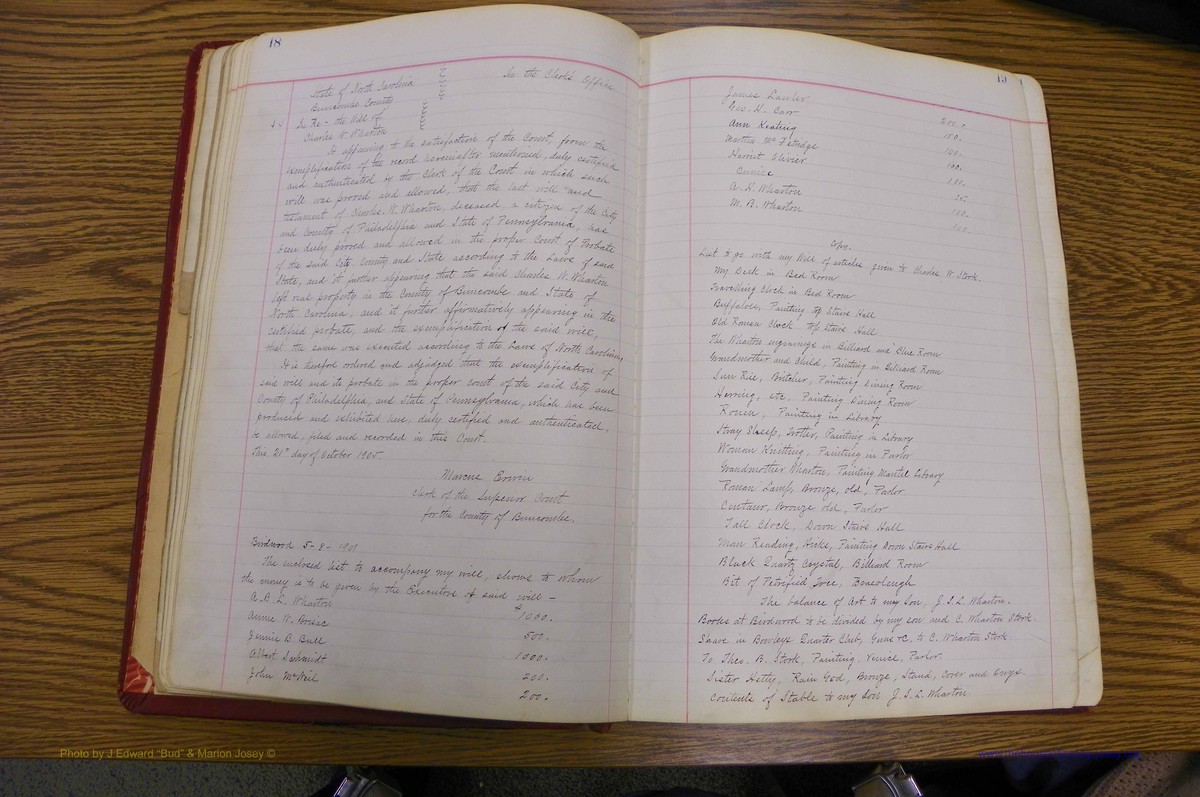 18
State of North Carolina
Buncombe County
In the Clerk's Office
In Re - the Will of
Charles W. Wharton
It appearing to the satisfaction of the Court, from the
exemplification of the record hereinafter mentioned, duly certified
and authenticated by the Clerk of the Court in which such
will was proved and allowed, that the last will and
testament of Charles W. Wharton, deceased, a citizen of the City
and County of Philadelphia and State of Pennsylvania, has
been duly proved and allowed in the proper Court of Probate
of the said City, County and State according to the Laws of said
State, and it further appearing that the said Charles W. Wharton
left real property in the County of Buncombe and State of
North Carolina, and it further affirmatively appearing in the
certified probate, and the exemplification of the said will,
that the same was executed according to the Laws of North Carolina,
It is therefore ordered and adjudged that the exemplification of
said will and its probate in the proper court of the said City and
County of Philadelphia, and State of Pennsylvania, which has been
produced and exhibited here, duly certified and authenticated,
be allowed, filed and recorded in this Court.
This 21st day of October 1905.
Marcus Erwin
Clerk of the Superior Court
for the County of Buncombe.
Birdwood 5-8-1901
The enclosed list to accompany my will, shows to whom
the money is to be given by the Executors of said will -
A.B.L. Wharton $1000.
Annie W. 500.
Jennie B. Bull 1000.
Albert Schmidt 200.
John McNeil 200.
19
James Lawler 200.
Geo. H. Carr 150.
Ann Keating 100.
Martha McFetridge 100.
Harriet 100.
Eunice
A. H. Wharton 100.
M. B. Wharton 100.
Copy.
List to go with my Will of articles given to Charles W. Stork.
My Desk in Bed Room
Travelling Clock in Bed Room
Buffaloes, Painting top Stairs Hall
Old Roman Clock top Stairs Hall
The Wharton engravings in Billiard and Blue Room
Grandmother and Child, Painting in Billiard Room
Sun Rise, Butcher, Painting Dining Room
Herring, etc. Painting Dining Room
Rouen, Painting in Library
Stray Sheep, Trotter, Painting in Library
Woman Knitting, Painting in Parlor
Grandmother Wharton, Painting Mantel Library
Roman Lamp, Bronze, old, Parlor
Centaur, Bronze old, Parlor
Tall Clock, Down Stairs Hall
Man Reading, Hicks, Painting Down Stairs Hall
Black Quartz Crystal, Billiard Room
Bit of Petrified Tree,
The balance of Art to my Son, J.S.L. Wharton.
Books at Birdwood to be divided by my son and C. Wharton Stork.
Share in Bowleys Quarter Club, Guns &c. to C. Wharton Stork
To Theo. B. Stork, Painting, Venice, Parlor.
Sister Hetty, Rain God, Bronze, Stand, Cover and Onyx.
Contents of Stable to my Son J.S.L. Wharton
Photo by J Edward "Bud" & Marion Josey ©